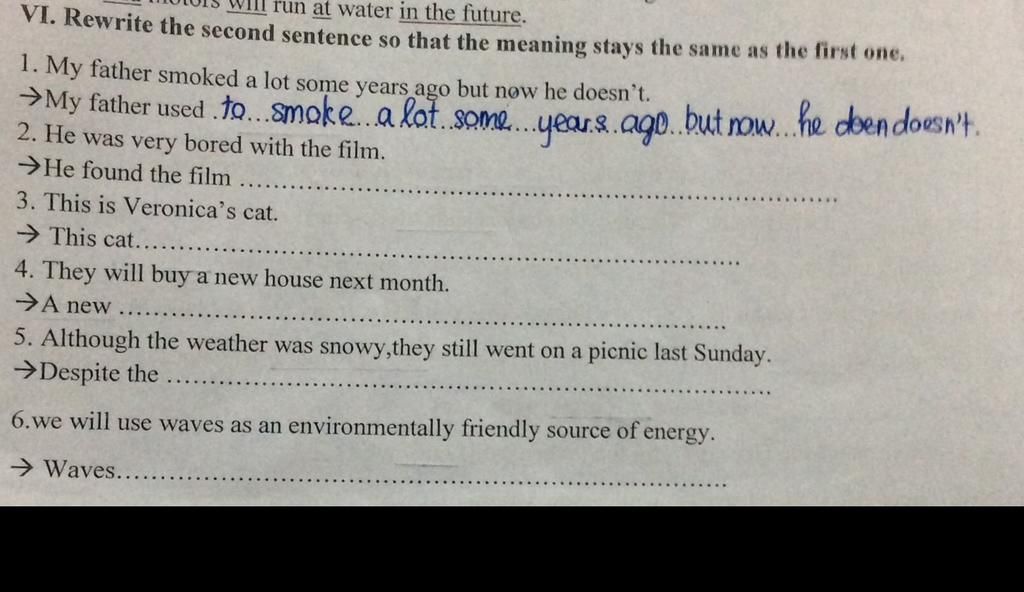 motors will run at water in the future.
VI. Rewrite the second sentence so that the meaning stays the same as the first one.
1. My father smoked a lot some years ago but now he doesn't.
→My father used to...smoke...a lot..some...years..ago..but now...he doen doesn't.
2. He was very bored with the film.
→He found the film ....................................................................................
3. This is Veronica's cat.
→ This cat....................................................................................
4. They will buy a new house next month.
→A new ....................................................................................
5. Although the weather was snowy,they still went on a picnic last Sunday.
→Despite the ....................................................................................
6.we will use waves as an environmentally friendly source of energy.
→ Waves....................................................................................